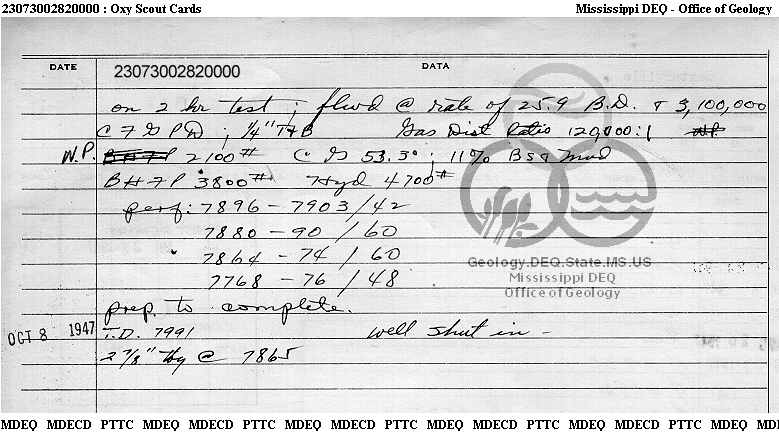 23073002820000 : Oxy Scout Cards Mississippi DEQ - Office of Geology
DATE 23073002820000 DATA
on 2 hr test; flwd @ rate of 25.9 B.D. & 3,100,000
C F G P D; 1/4" T & B Gas Dist Ratio 120,000:1
W.P. 2100# C G 53.3°; 11% BS & Mud
B H F P 3800# Hyd 4700#
perf: 7896 - 7903 / 42
7880 - 90 / 60
7864 - 74 / 60
7768 - 76 / 48
Geology.DEQ.State.MS.US
Mississippi DEQ
Office of Geology
prep. to complete.
OCT 8 1947 T.D. 7991 well shut in -
2 7/8" tbg @ 7865
MDEQ MDECD PTTC MDEQ MDECD PTTC MDEQ MDECD PTTC MDEQ MDECD PTTC MDEQ MDECD PTTC MDEQ MD